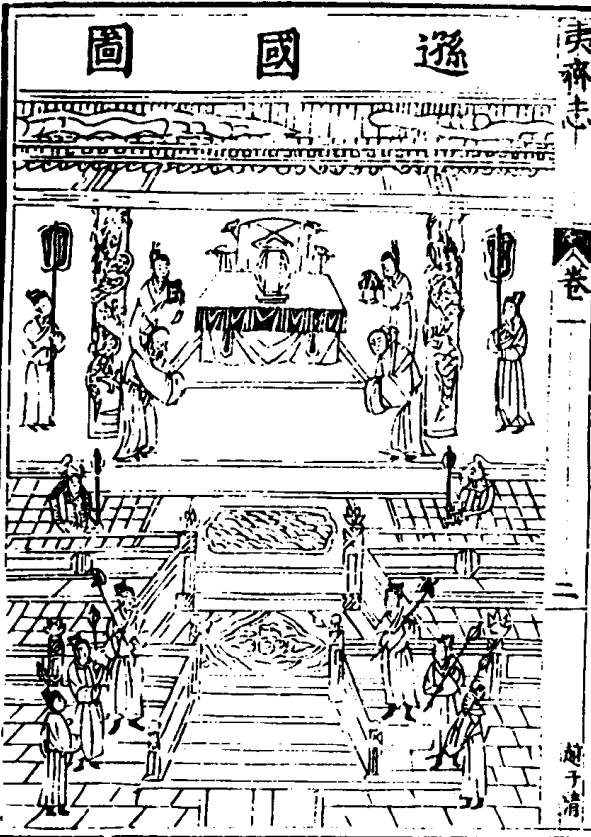 遜國圖
夷齊志
卷一
二
子清